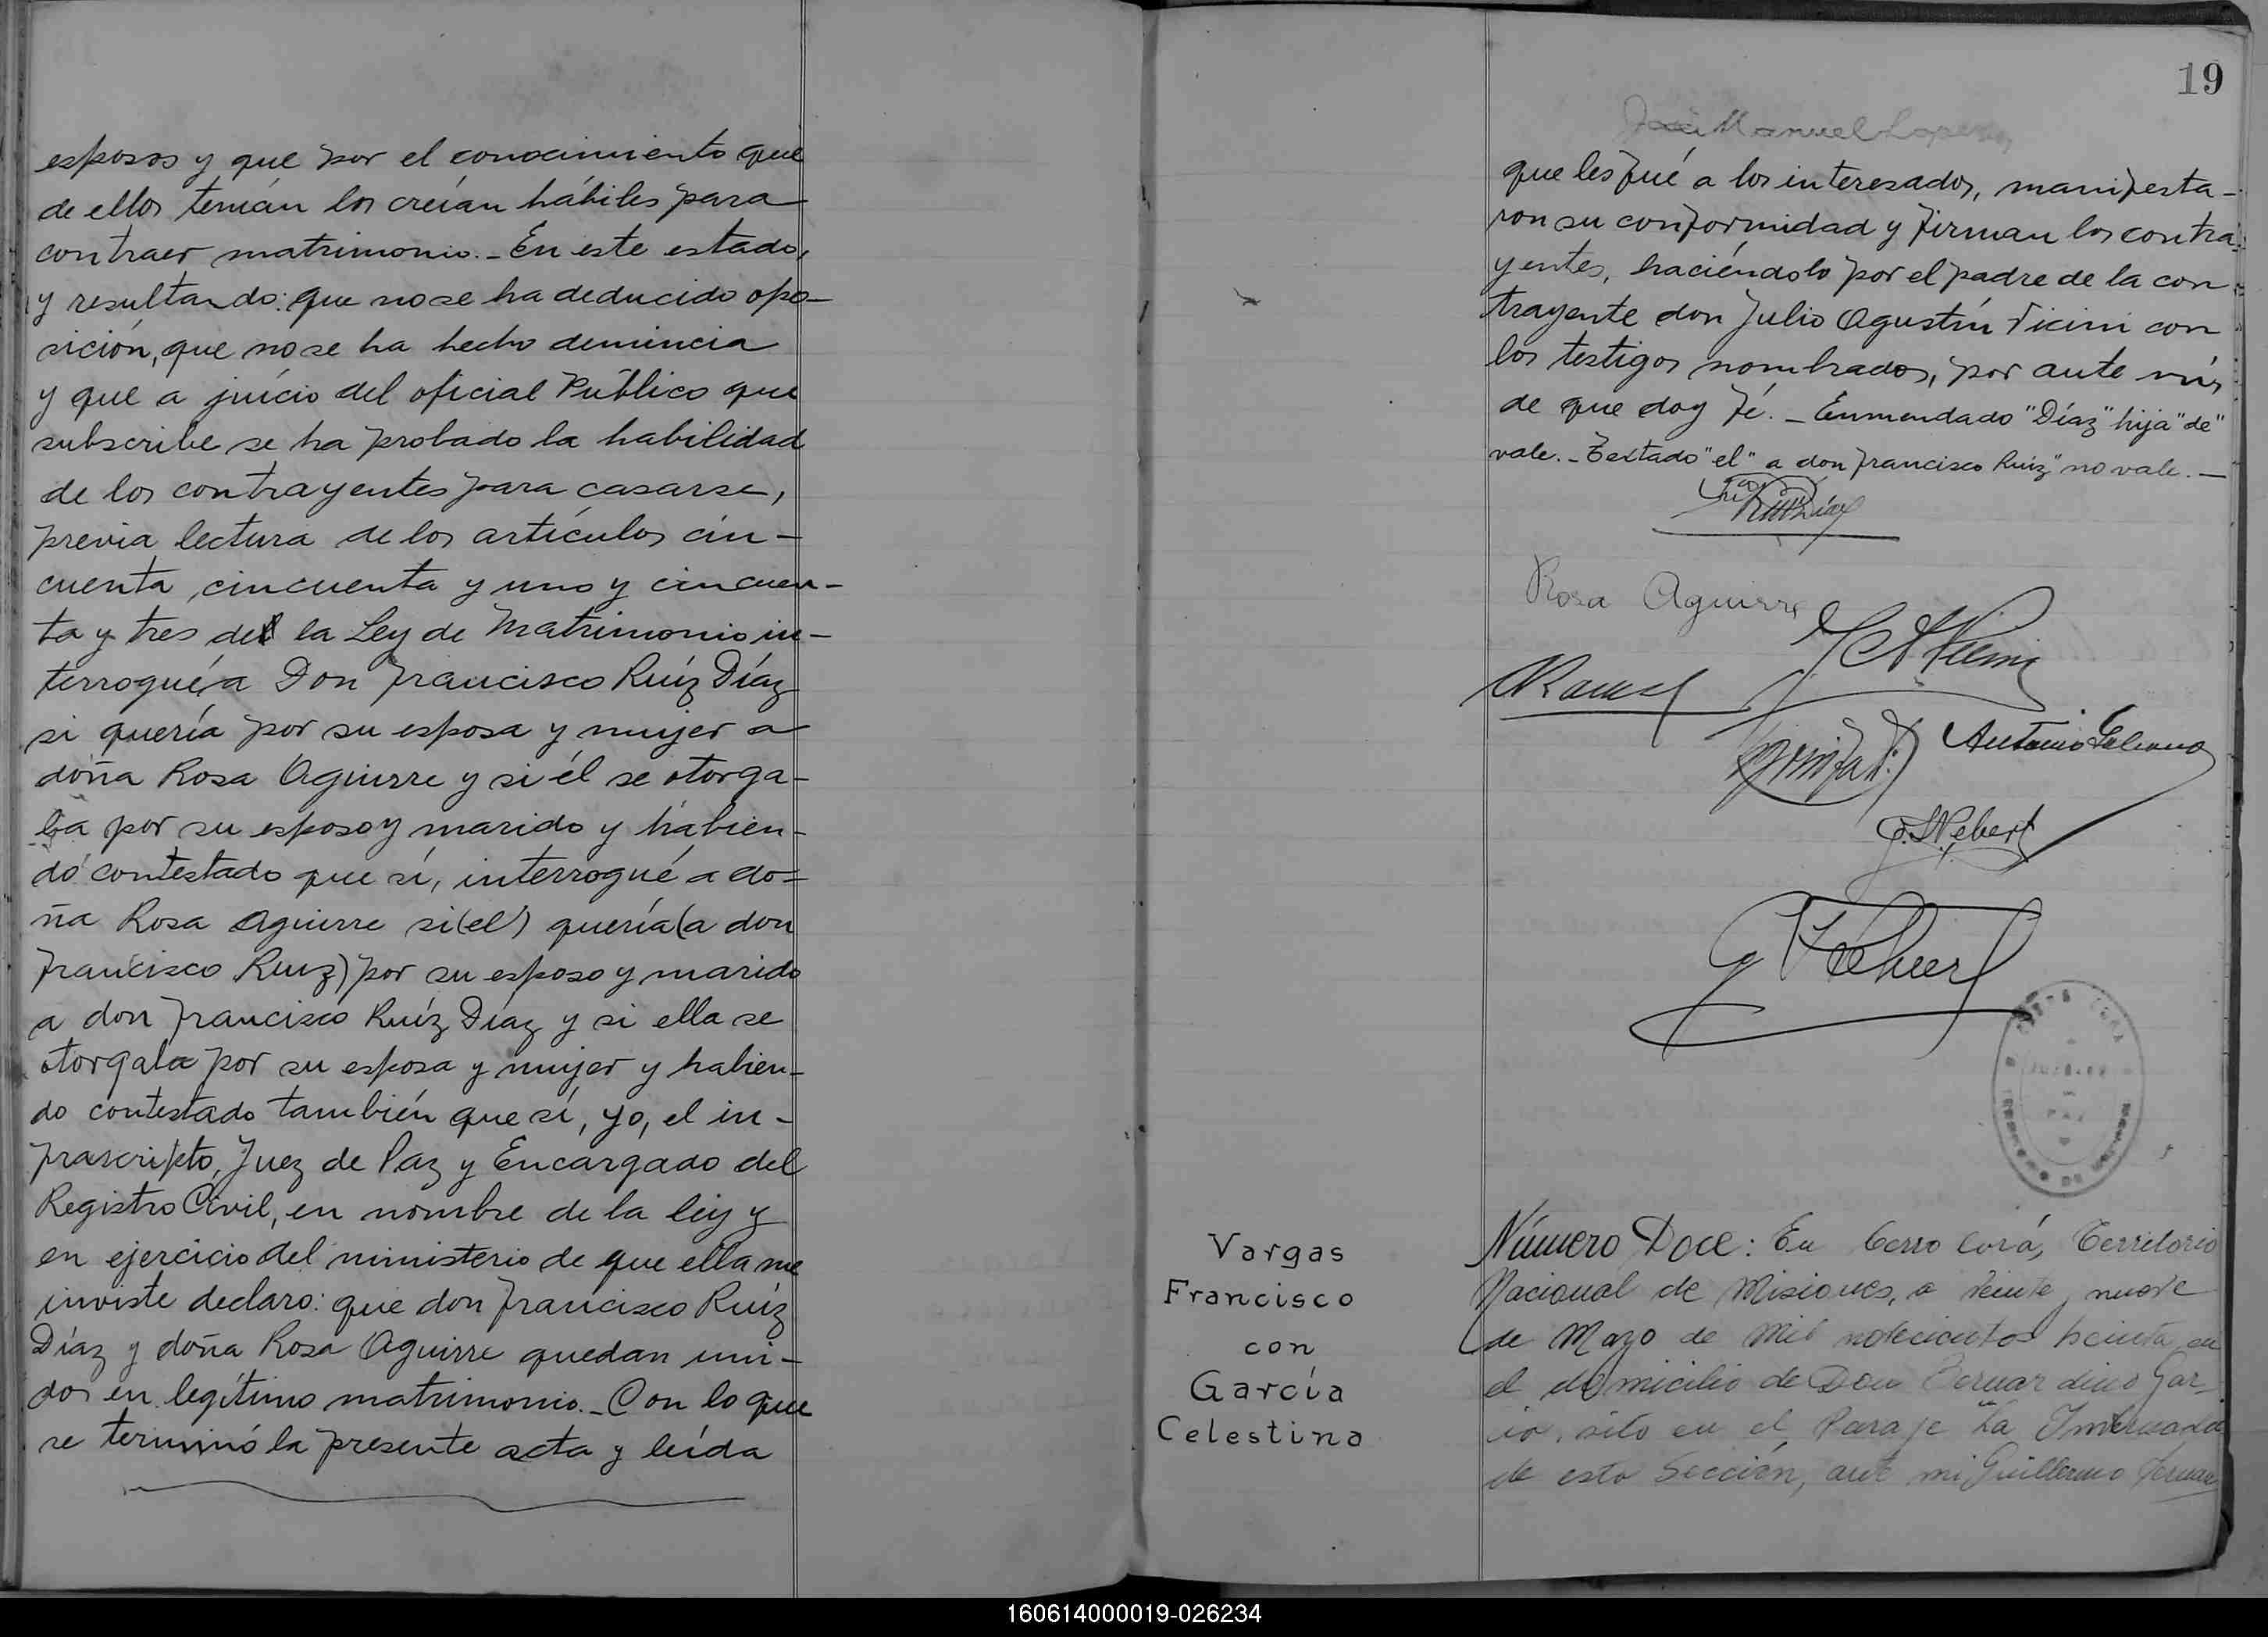 esposos y que por el conocimiento que
de ellos tenían los creían hábiles para
contraer matrimonio.- En este estado,
y resultando: que no se ha deducido opo-
sición, que no se ha hecho denuncia
y que a juício del oficial Público que
subscribe se ha probado la habilidad
de los contrayentes para casarse,
previa lectura de los artículos cin-
cuenta, cincuenta y uno y cincuen-
ta y tres del la Ley de Matrimonio in-
terrogué, a Don Francisco Ruíz Díaz
si quería por su esposa y mujer a
doña Rosa Aguirre y si él se otorga-
ba por su esposo y marido y habien-
do contestado que sí, interrogué a do-
ña Rosa Aguirre si (el) quería (a don
Francisco Ruiz) por su esposo y marido
a don Francisco Ruíz Díaz y si ella se
otorgaba por su esposa y mujer y habien-
do contestado también que sí, yo, el in-
frascripto, Juez de Paz y Encargado del
Registro Civil, en nombre de la ley y
en ejercicio del ministerio de que ella me
inviste declaro: que don Francisco Ruíz
Díaz y doña Rosa Aguirre quedan uni-
dos en legítimo matrimonio.- Con lo que
se terminó la presente acta y leída
19
José Manuel Lopez
que les fué a los interesados, manifesta-
ron su conformidad y firman los contra-
yentes, haciéndolo por el padre de la con-
trayente don Julio Agustín Vicini con
los testigos nombrados, por ante mí,
de que doy fé.- Enmendado "Díaz" hija "de"
vale.- Testado "el" a don Francisco Ruiz" no vale.-
Rosa Aguirre
Antonio Galeano
Vargas
Francisco
con
García
Celestina
Número Doce: En Cerro Corá, Territorio
Nacional de Misiones, a veinte y nueve
de Mayo de mil novecientos treinta en
el domicilio de Don Bernardino Gar-
cía, sito en el Paraje "La Invernada
de esta Sección, ante mi Guillermo
160614000019-026234